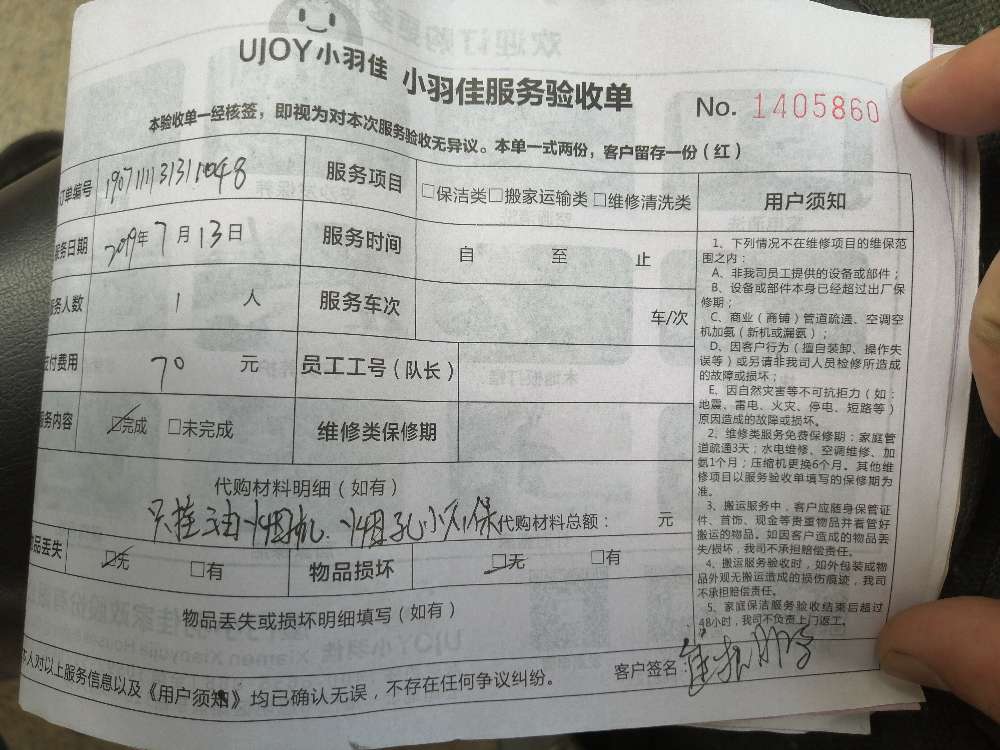 UJOY小羽佳 小羽佳服务验收单 No. 1405860
本验收单一经核签，即视为对本次服务验收无异议。本单一式两份，客户留存一份（红）
订单编号 服务项目 □保洁类□搬家运输类□维修清洗类
服务日期 2019年7月13日 服务时间 自 至 止
服务人数 1 人 服务车次 车/次
支付费用 70 元 员工工号（队长）
服务内容 ☑完成 □未完成 维修类保修期
代购材料明细（如有）
只挂油烟机、烟孔 代购材料总额： 元
物品丢失 ☑无 □有 物品损坏 ☑无 □有
物品丢失或损坏明细填写（如有）
本人对以上服务信息以及《用户须知》均已确认无误，不存在任何争议纠纷。 客户签名：
用户须知
1、下列情况不在维修项目的维保范
围之内：
A、非我司员工提供的设备或部件；
B、设备或部件本身已经超过出厂保
修期；
C、商业（商铺）管道疏通、空调空
机加氨（新机或漏氨）；
D、因客户行为（擅自装卸、操作失
误等）或另请非我司人员检修所造成
的故障或损坏；
E、因自然灾害等不可抗拒力（如：
地震、雷电、火灾、停电、短路等）
原因造成的故障或损坏。
2、维修类服务免费保修期：家庭管
道疏通3天；水电维修、空调维修、加
氨1个月；压缩机更换6个月。其他维
修项目以服务验收单填写的保修期为
准。
3、搬运服务中，客户应随身保管证
件、首饰、现金等贵重物品并看管好
搬运的物品。如因客户造成的物品丢
失/损坏，我司不承担赔偿责任。
4、搬运服务验收时，如外包装或物
品外观无搬运造成的损伤痕迹，我司
不承担赔偿责任。
5、家庭保洁服务验收结束后超过
48小时，我司不负责上门返工。